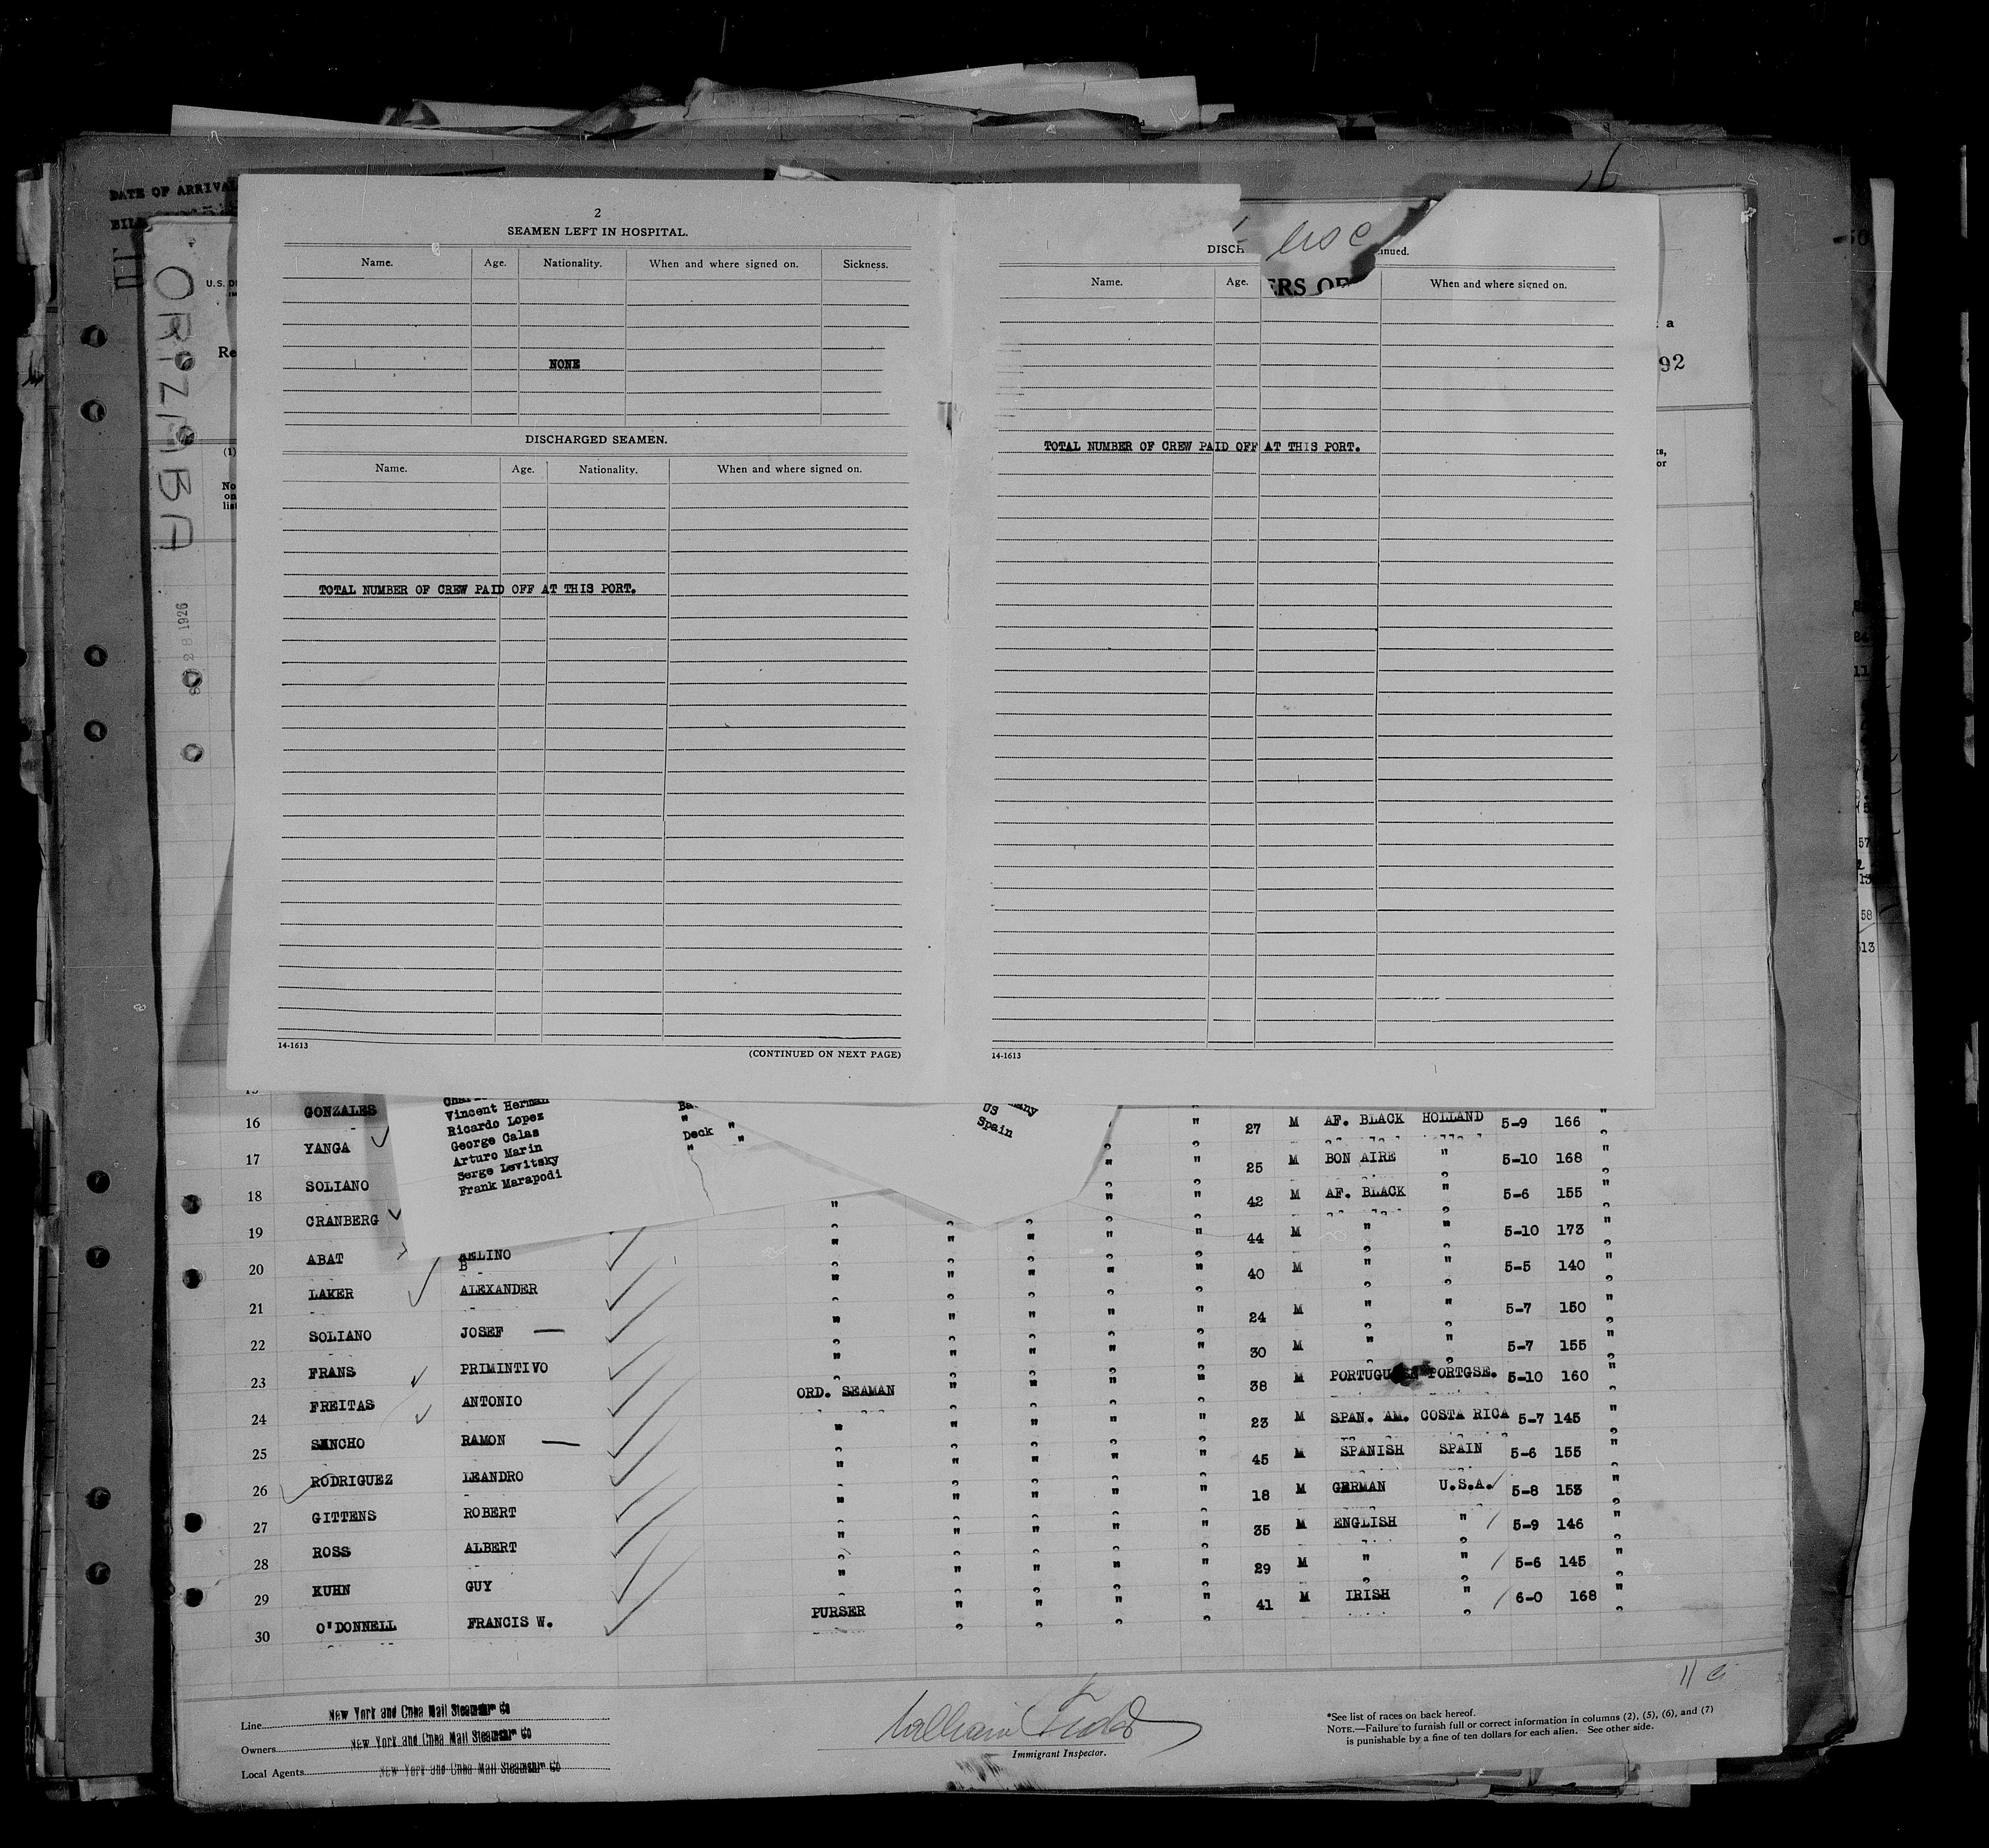 DATE OF ARRIVAL
ORIZABA
28 1926
2
SEAMEN LEFT IN HOSPITAL.
Name. Age. Nationality. When and where signed on. Sickness.
NONE
DISCHARGED SEAMEN.
Name. Age. Nationality. When and where signed on.
TOTAL NUMBER OF CREW PAID OFF AT THIS PORT.
14-1613
(CONTINUED ON NEXT PAGE)
DISCH
inued.
ERS OF
Name. Age. When and where signed on.
TOTAL NUMBER OF CREW PAID OFF AT THIS PORT.
14-1613
92
Vincent Herman
Ricardo Lopez
George Calas Deck "
Arturo Marin " "
Serge Levitsky
Frank Marapodi
US
Spain
16 GONZALES " 27 M AF. BLACK HOLLAND 5-9 166 "
17 YANGA " " 25 M BON AIRE " 5-10 168 "
18 SOLIANO " " 42 M AF. BLACK " 5-6 155 "
19 CRANBERG " " " " " 44 M " " 5-10 173 "
20 ABAT AELINO B " " " " " 40 M " " 5-5 140 "
21 LAKER ALEXANDER " " " " " 24 M " " 5-7 150 "
22 SOLIANO JOSEF — " " " " " 30 M " " 5-7 155 "
23 FRANS PRIMINTIVO " " " " 38 M PORTUGU PORTGSE. 5-10 160 "
24 FREITAS ANTONIO ORD. SEAMAN " " " " 23 M SPAN. AM. COSTA RICA 5-7 145 "
25 SANCHO RAMON — " " " " " 45 M SPANISH SPAIN 5-6 155 "
26 RODRIGUEZ LEANDRO " " " " " 18 M GERMAN U.S.A. 5-8 153 "
27 GITTENS ROBERT " " " " " 35 M ENGLISH " 5-9 146 "
28 ROSS ALBERT " " " " " 29 M " " 5-6 145 "
29 KUHN GUY " " " " 41 M IRISH " 6-0 168 "
30 O'DONNELL FRANCIS W. PURSER " " " "
Line New York and Cuba Mail Steamship Co
Owners New York and Cuba Mail Steamship Co
Local Agents New York and Cuba Mail Steamship Co
Immigrant Inspector.
*See list of races on back hereof.
NOTE.—Failure to furnish full or correct information in columns (2), (5), (6), and (7)
is punishable by a fine of ten dollars for each alien. See other side.